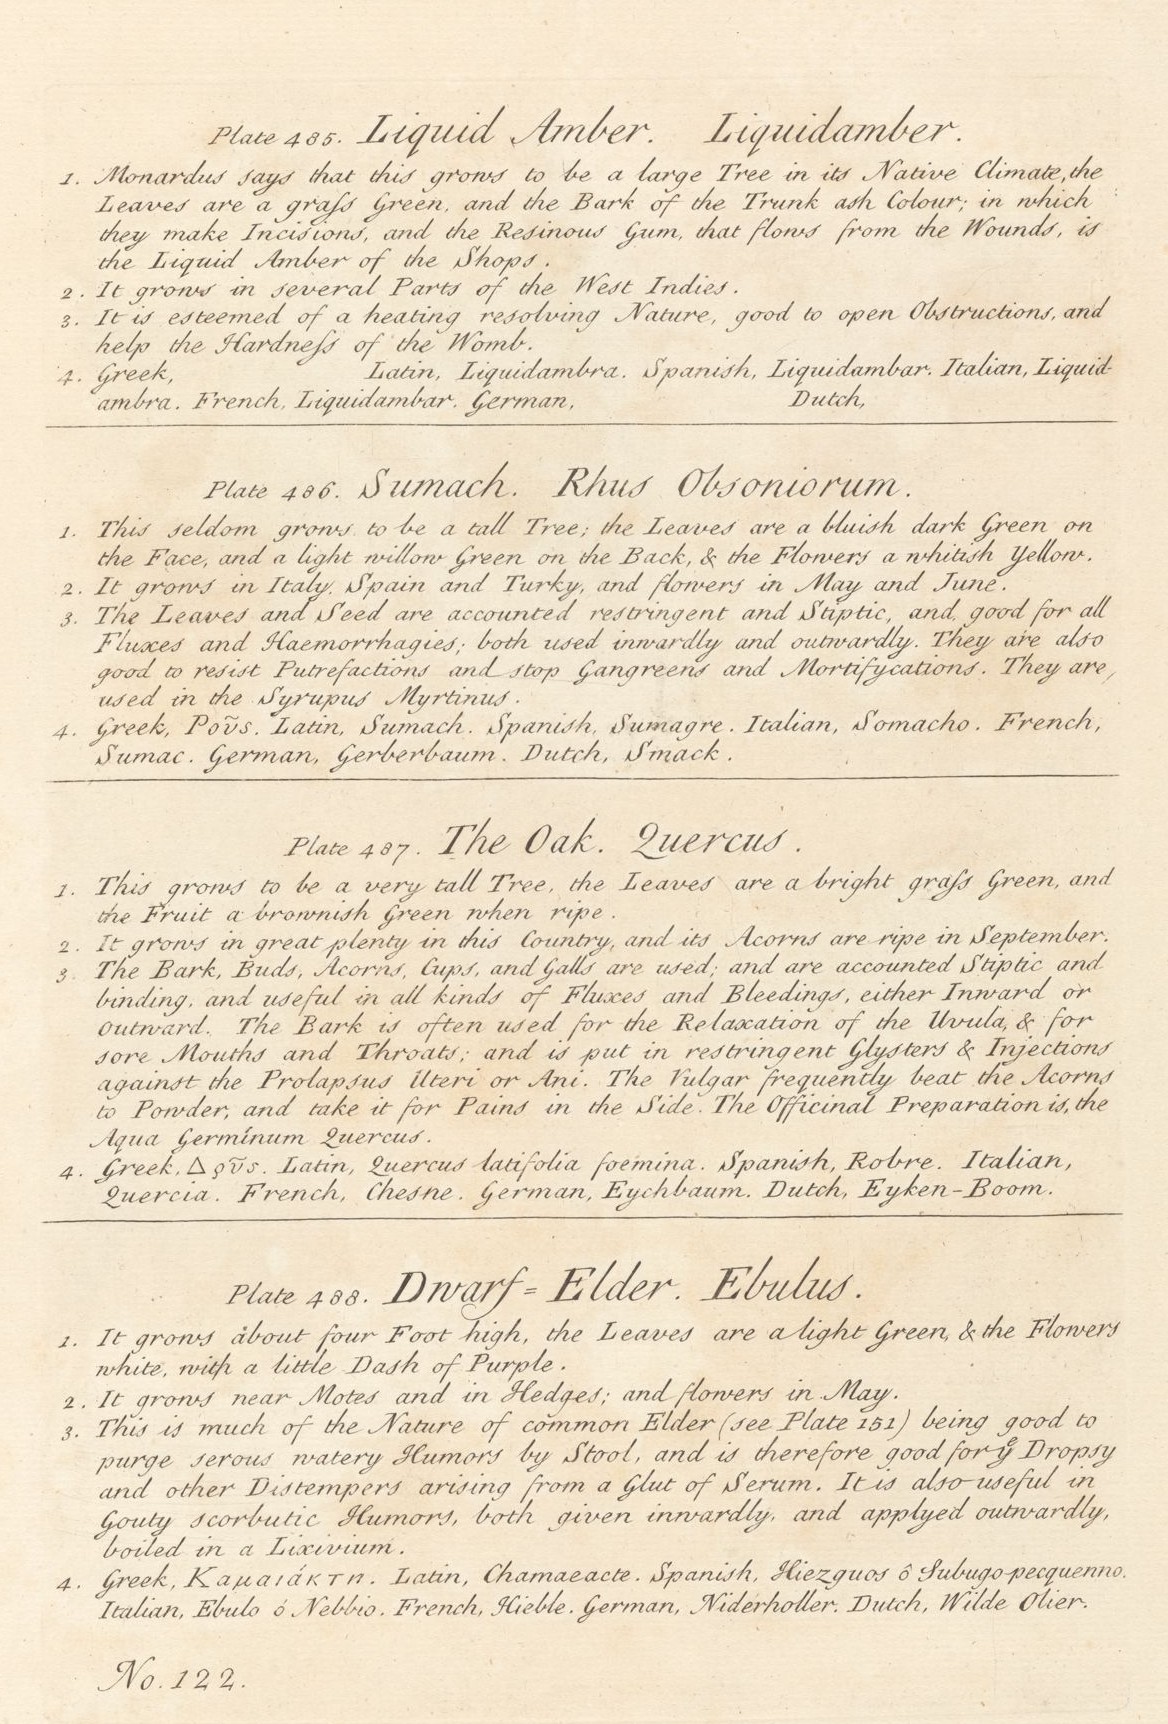 Plate 485. Liquid Amber. Liquidamber.
1. Monardus says that this grows to be a large Tree in its Native Climate, the
Leaves are a graſs Green, and the Bark of the Trunk ash Colour; in which
they make Incisions, and the Resinous Gum, that flows from the Wounds, is
the Liquid Amber of the Shops.
2. It grows in several Parts of the West Indies.
3. It is esteemed of a heating resolving Nature, good to open Obstructions, and
help the Hardneſs of the Womb.
4. Greek, Latin, Liquidambra. Spanish, Liquidambar. Italian, Liquid-
ambra. French, Liquidambar. German, Dutch,
Plate 486. Sumach. Rhus Obsoniorum.
1. This seldom grows to be a tall Tree; the Leaves are a bluish dark Green on
the Face, and a light willow Green on the Back, & the Flowers a whitish Yellow.
2. It grows in Italy, Spain and Turky, and flowers in May and June.
3. The Leaves and Seed are accounted restringent and Stiptic, and good for all
Fluxes and Haemorrhagies; both used inwardly and outwardly. They are also
good to resist Putrefactions and stop Gangreens and Mortifycations. They are,
used in the Syrupus Myrtinus.
4. Greek, Ροῦς. Latin, Sumach. Spanish, Sumagre. Italian, Somacho. French,
Sumac. German, Gerberbaum. Dutch, Smack.
Plate 487. The Oak. Quercus.
1. This grows to be a very tall Tree, the Leaves are a bright graſs Green, and
the Fruit a brownish Green when ripe.
2. It grows in great plenty in this Country, and its Acorns are ripe in September.
3. The Bark, Buds, Acorns, Cups, and Galls are used; and are accounted Stiptic and
binding, and useful in all kinds of Fluxes and Bleedings, either Inward or
outward. The Bark is often used for the Relaxation of the Uvula, & for
sore Mouths and Throats; and is put in restringent Glysters & Injections
against the Prolapsus Uteri or Ani. The Vulgar frequently beat the Acorns
to Powder, and take it for Pains in the Side. The Officinal Preparation is, the
Aqua Germinum Quercus.
4. Greek, Δρῦς. Latin, Quercus latifolia foemina. Spanish, Robre. Italian,
Quercia. French, Chesne. German, Eychbaum. Dutch, Eyken-Boom.
Plate 488. Dwarf=Elder. Ebulus.
1. It grows about four Foot high, the Leaves are a light Green, & the Flowers
white, with a little Dash of Purple.
2. It grows near Motes and in Hedges; and flowers in May.
3. This is much of the Nature of common Elder (see Plate 151) being good to
purge serous watery Humors by Stool, and is therefore good for yͤ Dropsy
and other Distempers arising from a Glut of Serum. It is also useful in
Gouty scorbutic Humors, both given inwardly, and applyed outwardly,
boiled in a Lixivium.
4. Greek, Καμαιάκτη. Latin, Chamaeacte. Spanish, Hiezguos ô Subugo-pecquenno.
Italian, Ebulo ó Nebbio. French, Hieble. German, Niderholler. Dutch, Wilde Olier.
No. 122.